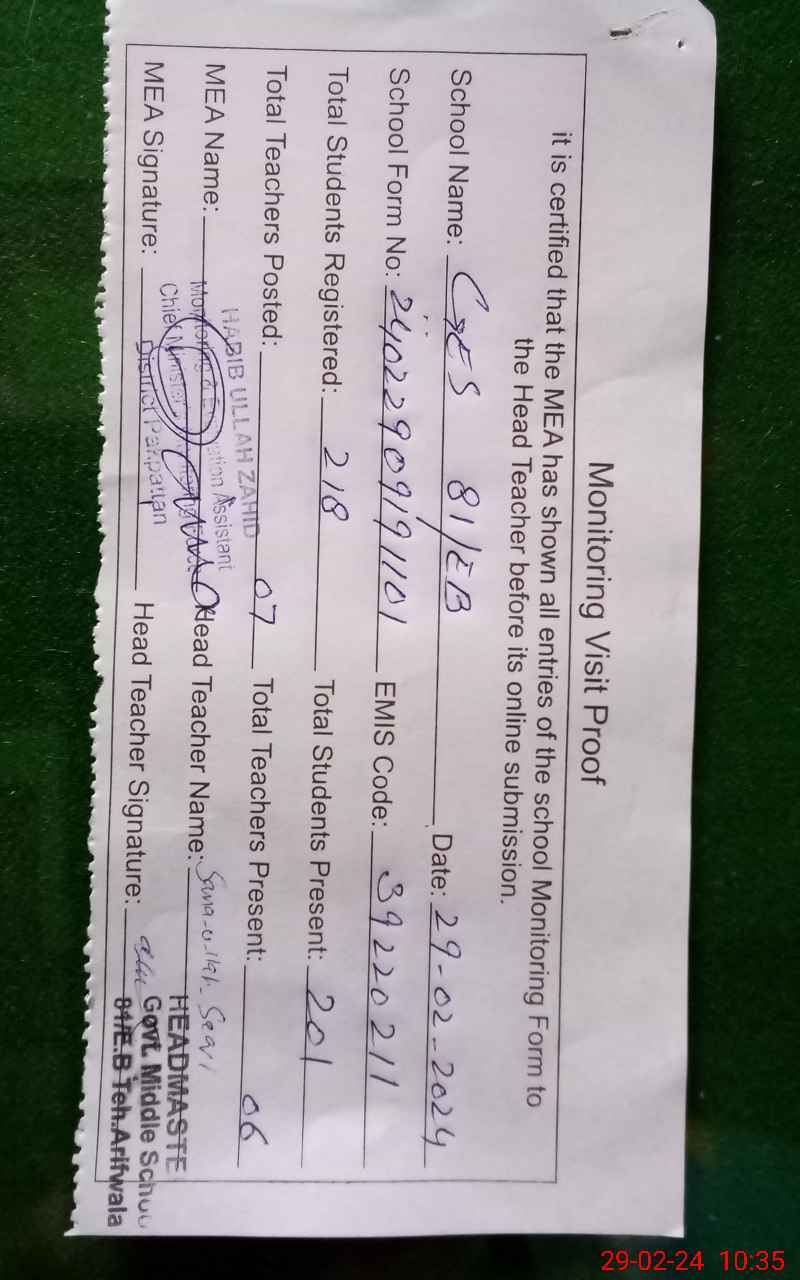 Monitoring Visit Proof
it is certified that the MEA has shown all entries of the school Monitoring Form to
the Head Teacher before its online submission.
School Name: GES 81/EB Date: 29-02-2024
School Form No: 24022909191101 EMIS Code: 39220211
Total Students Registered: 218 Total Students Present: 201
Total Teachers Posted: 07 Total Teachers Present: 06
MEA Name: HABIB ULLAH ZAHID Head Teacher Name: Sana-ullah
Monitoring & Evaluation Assistant
Chief Minister
District Pakpattan
MEA Signature: Head Teacher Signature:
HEADMASTE
Govt. Middle School
81/E.B Teh.Arifwala
29-02-24 10:35